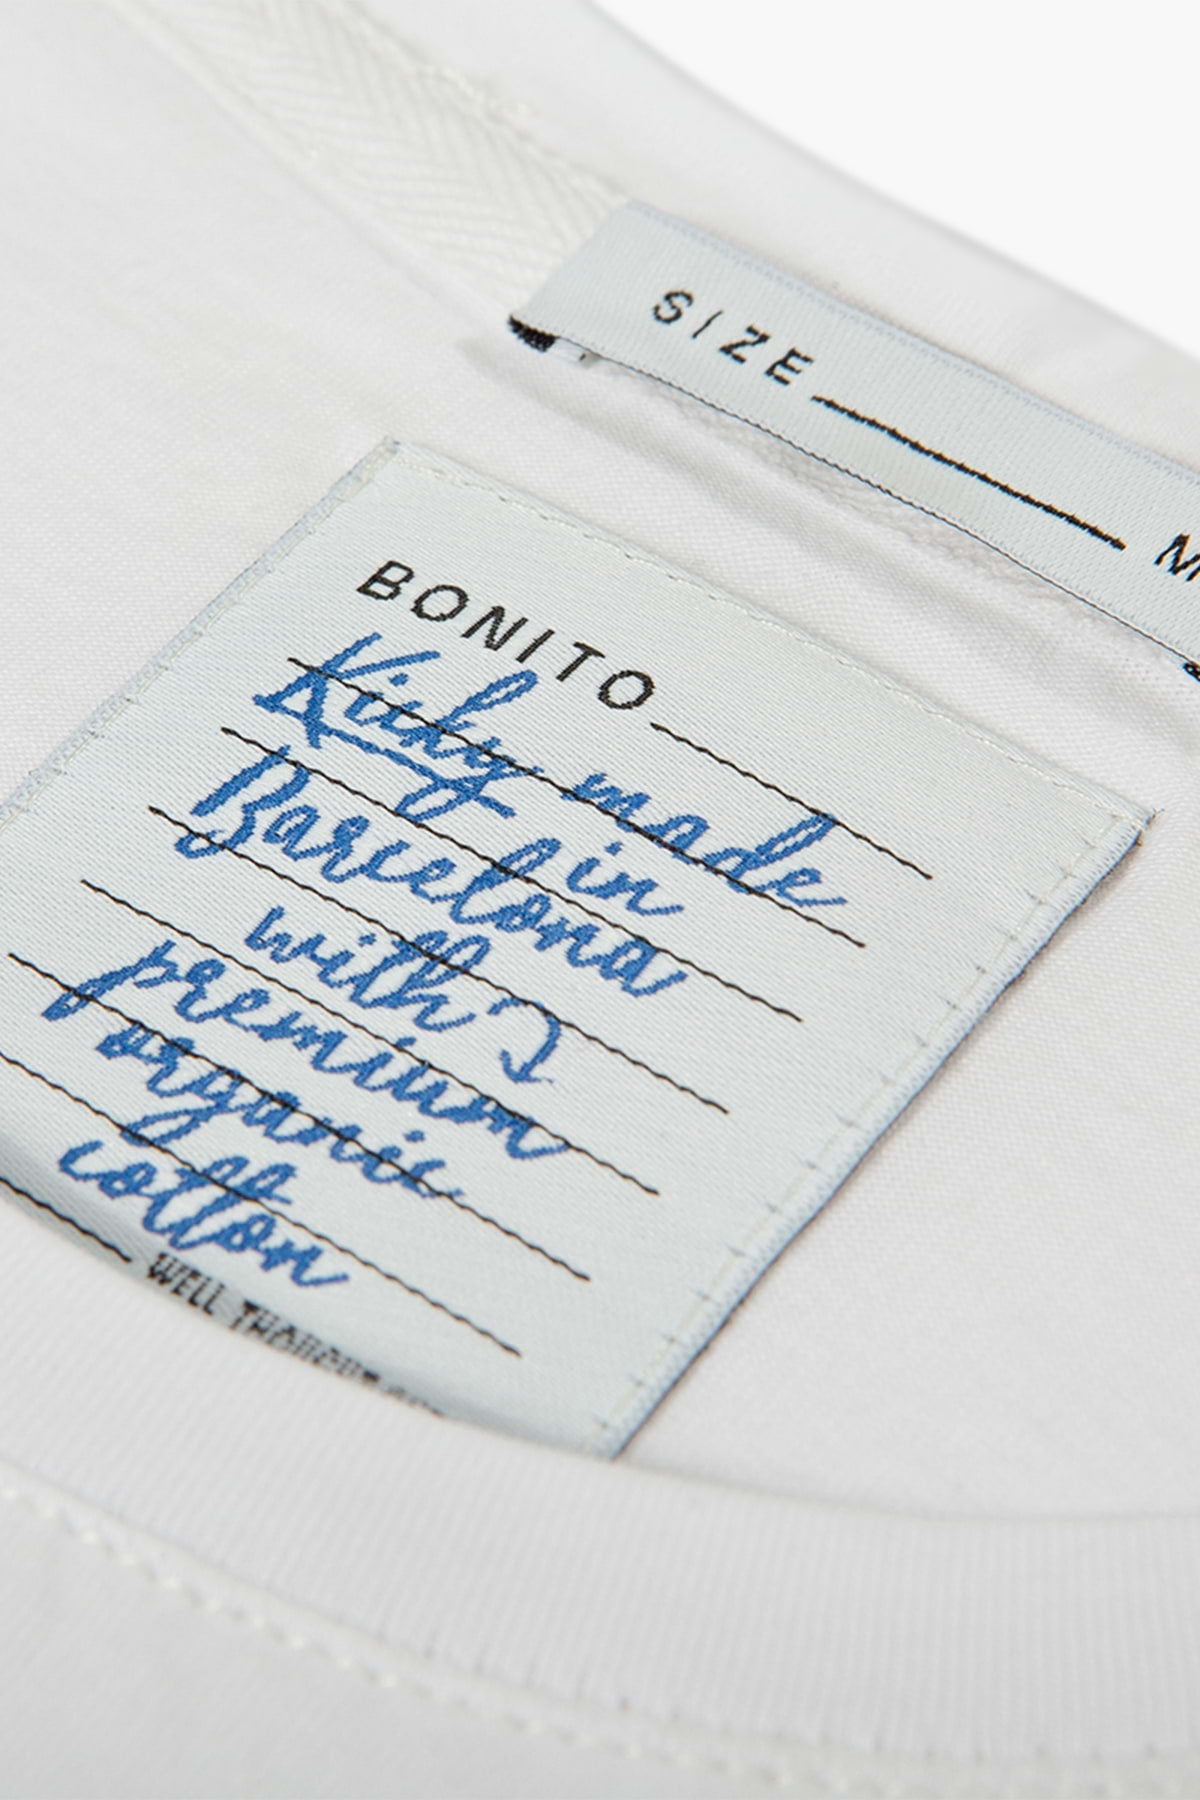 SIZE
BONITO
Kicky made
Barcelona in
with
premium
organic
cotton
WELL THOUGHT